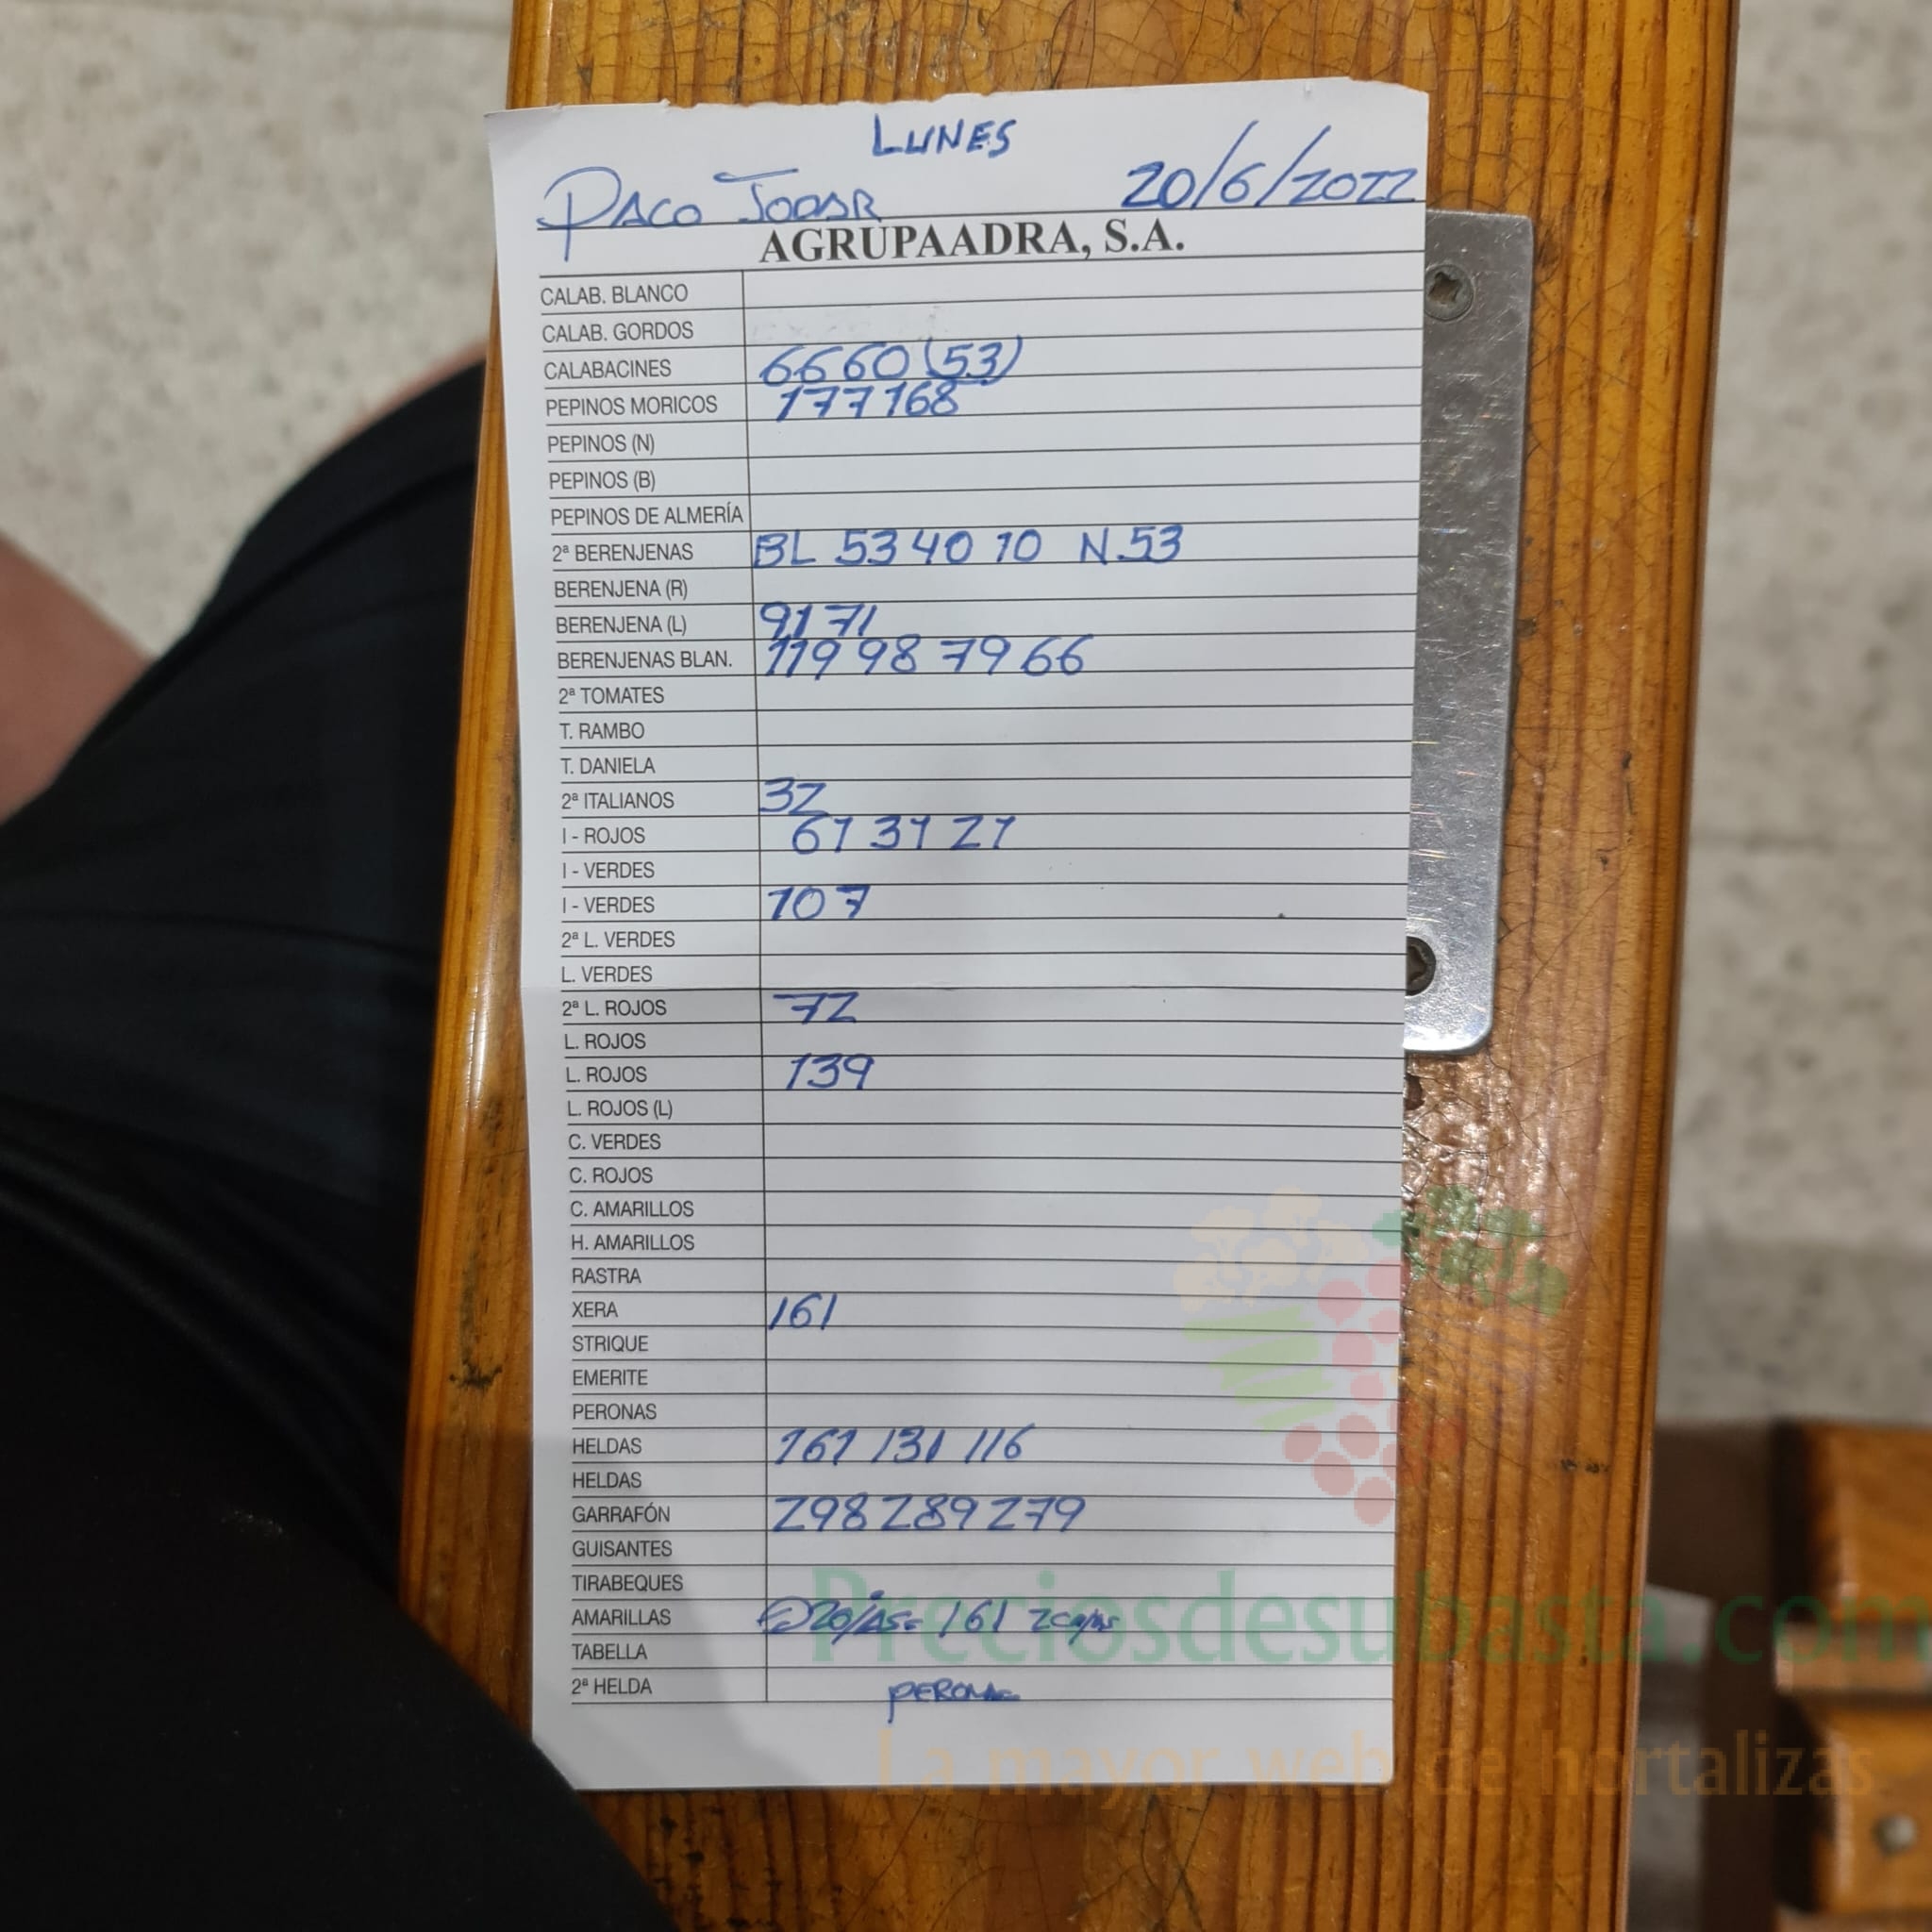 LUNES
PACO JODAR 20/6/2022
AGRUPAADRA, S.A.
CALAB. BLANCO
CALAB. GORDOS
CALABACINES 66 60 (53)
PEPINOS MORICOS 177 168
PEPINOS (N)
PEPINOS (B)
PEPINOS DE ALMERÍA
2ª BERENJENAS BL 53 40 10 N.53
BERENJENA (R)
BERENJENA (L) 91 71
BERENJENAS BLAN. 119 98 79 66
2ª TOMATES
T. RAMBO
T. DANIELA
2ª ITALIANOS 32
I - ROJOS 61 31 21
I - VERDES
I - VERDES 107
2ª L. VERDES
L. VERDES
2ª L. ROJOS 72
L. ROJOS
L. ROJOS 139
L. ROJOS (L)
C. VERDES
C. ROJOS
C. AMARILLOS
H. AMARILLOS
RASTRA
XERA 161
STRIQUE
EMERITE
PERONAS
HELDAS 161 131 116
HELDAS
GARRAFÓN 298 289 279
GUISANTES
TIRABEQUES
AMARILLAS 161 2 cajas
TABELLA
2ª HELDA PERONA
Preciosdesubasta.com
La mayor web de hortalizas